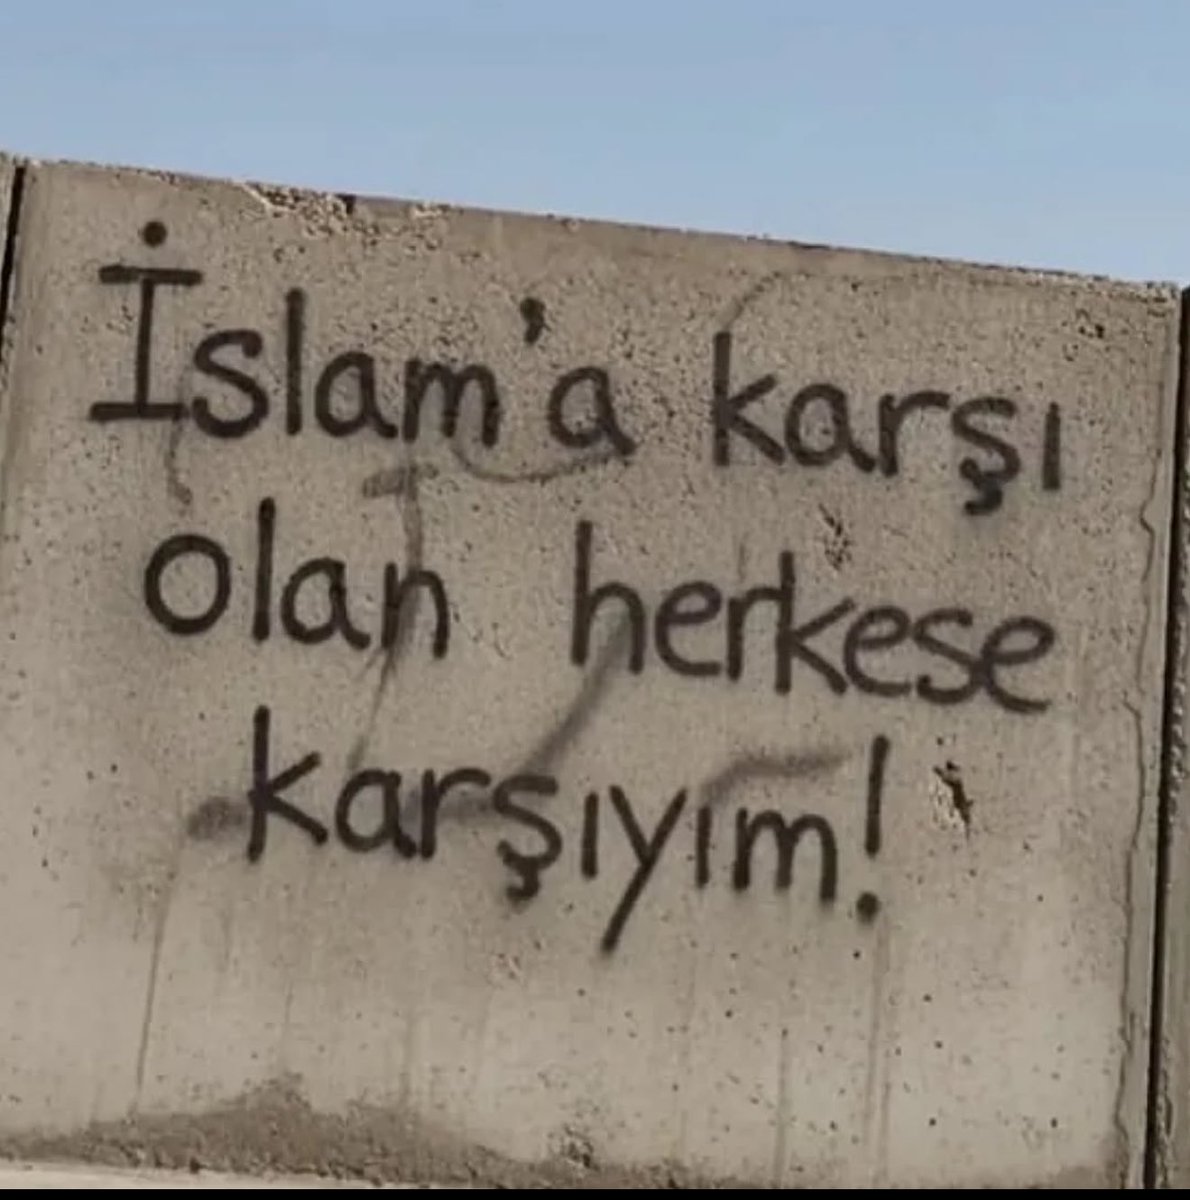 İslam'a karşı
olan herkese
karşıyım!